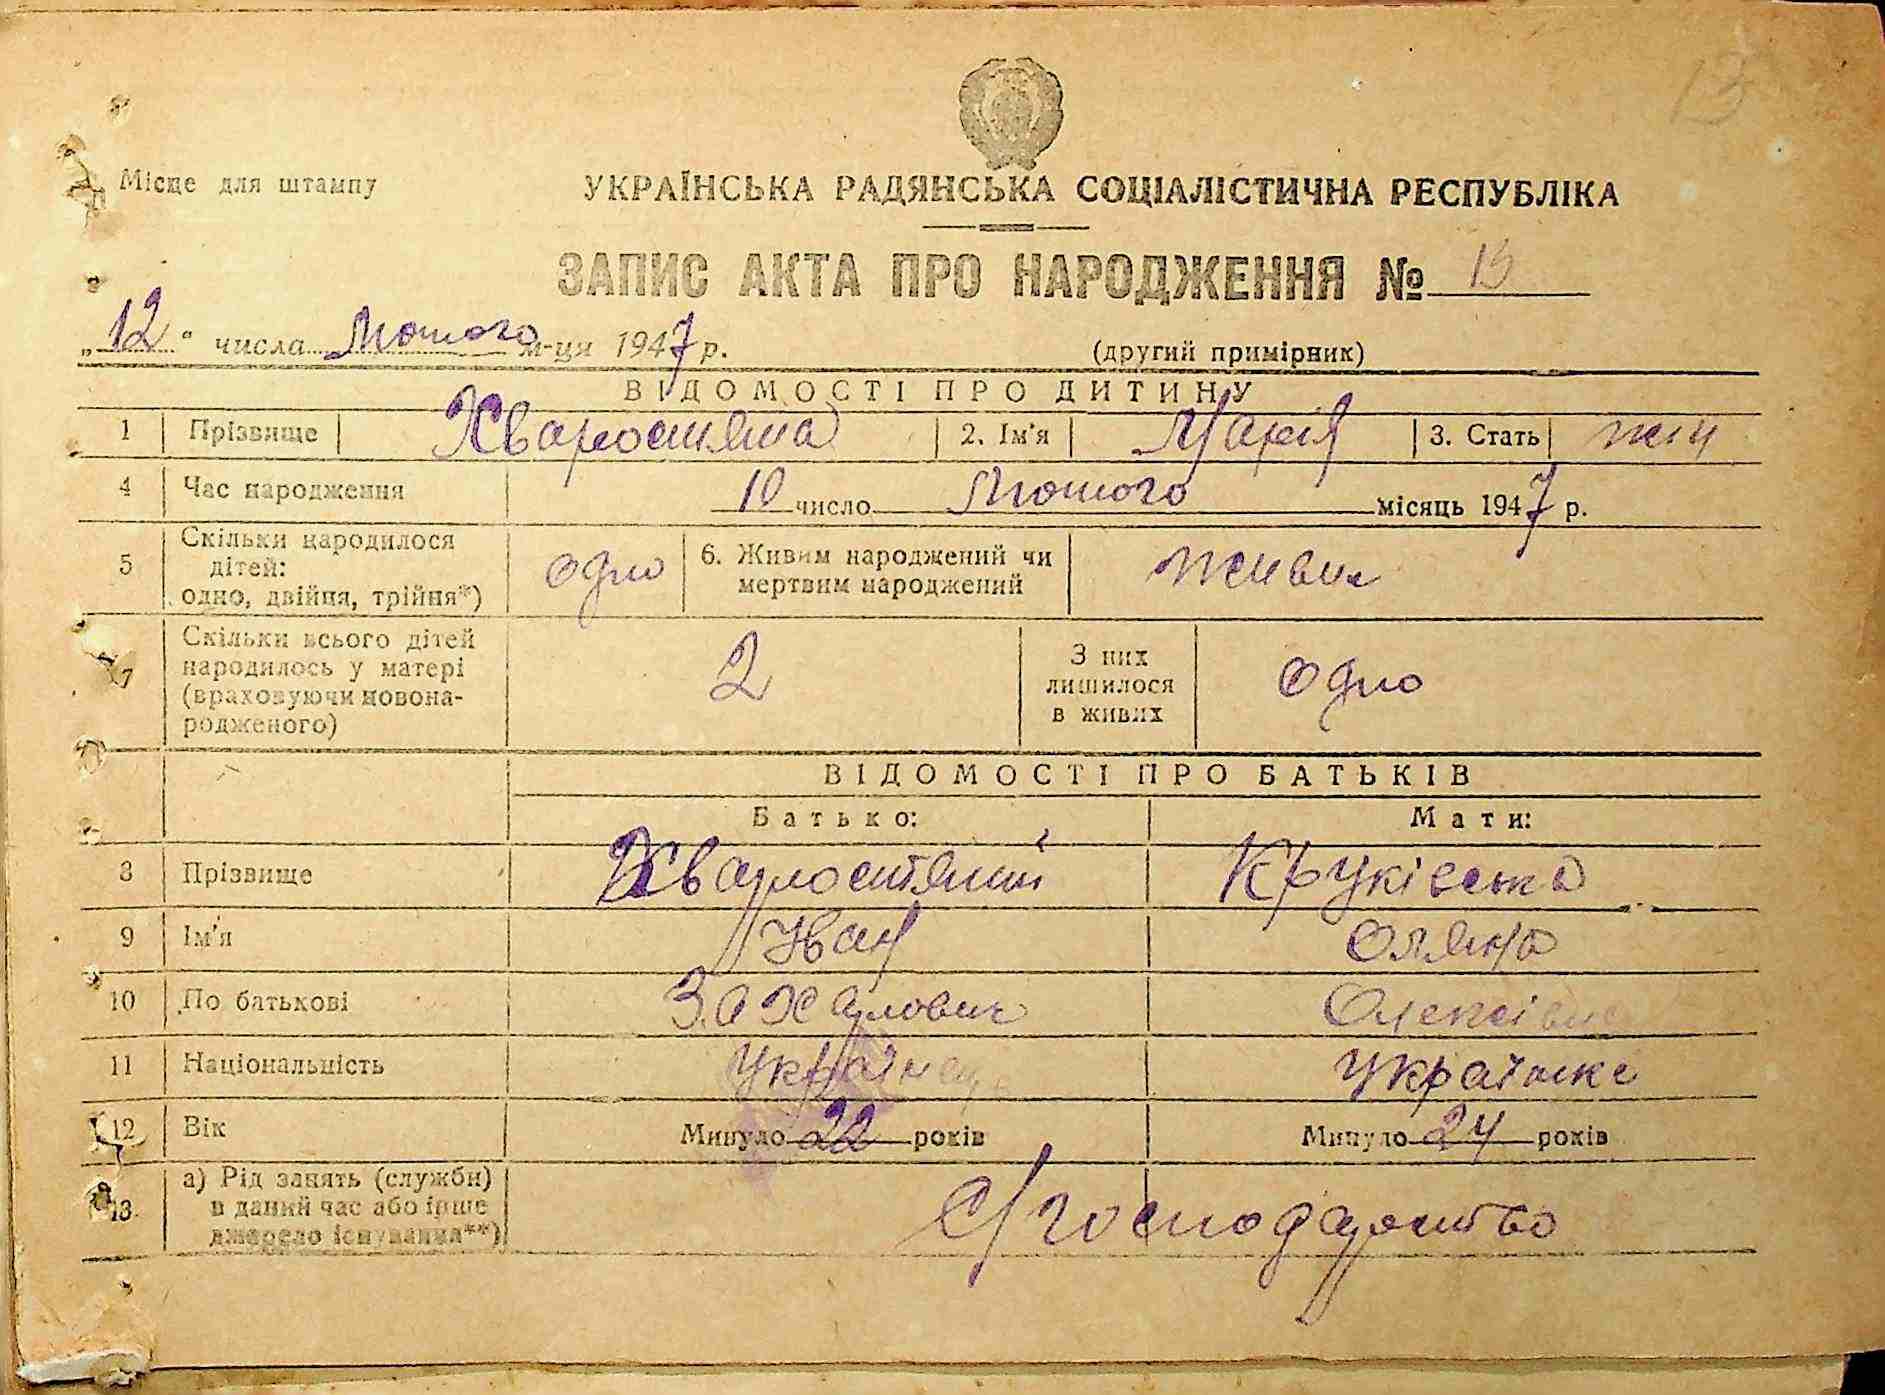 13
Місце для штампу
УКРАЇНСЬКА РАДЯНСЬКА СОЦІАЛІСТИЧНА РЕСПУБЛІКА
ЗАПИС АКТА ПРО НАРОДЖЕННЯ № 13
„12" числа Лютого м-ця 1947 р.
(другий примірник)
ВІДОМОСТІ ПРО ДИТИНУ
1 Прізвище Хваростяна 2. Ім'я Марія 3. Стать жін
4 Час народження 10 число Лютого місяць 1947 р.
5 Скільки народилося дітей: одно, двійня, трійня*) одно 6. Живим народжений чи мертвим народжений живим
7 Скільки всього дітей народилось у матері (враховуючи новонародженого) 2 З них лишилося в живих одно
ВІДОМОСТІ ПРО БАТЬКІВ
Батько: Мати:
8 Прізвище Хваростяний Круківська
9 Ім'я Іван Оляна
10 По батькові Захарович Олексівна
11 Національність Українець Українка
12 Вік Минуло 22 років Минуло 24 років
13 а) Рід занять (служби) в даний час або інше джерело існування**) С/господарство